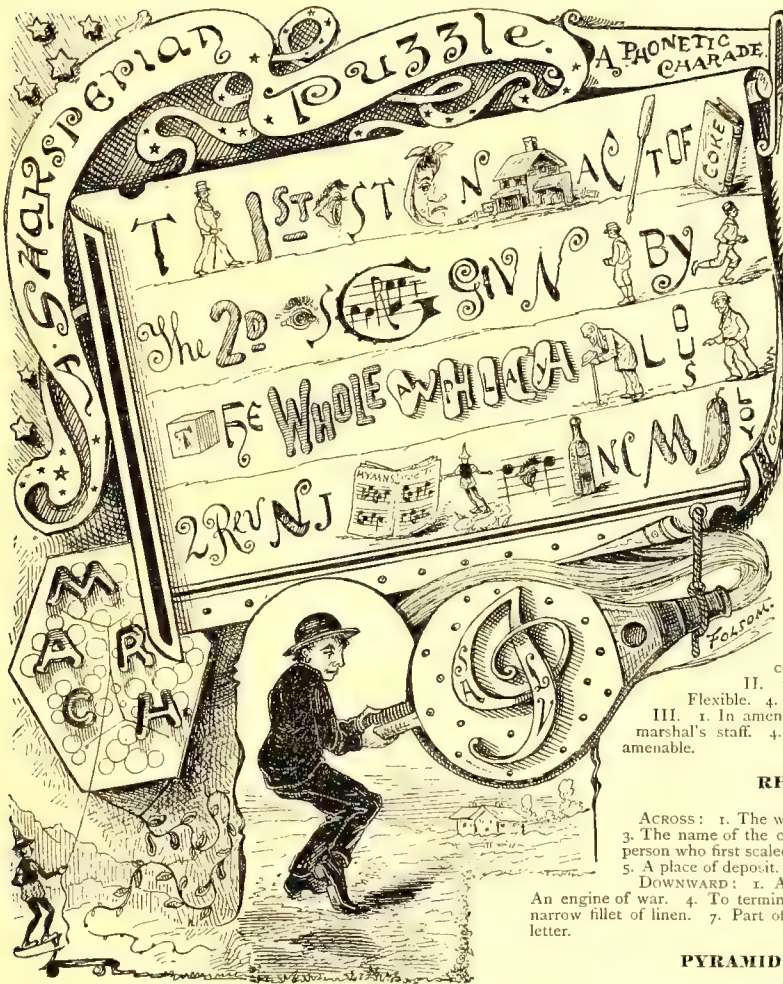 A SHAKSPERIAN Puzzle.
A PHONETIC
CHARADE.
T 1ST ST N AC T OF COKE
The 2D S GIVN BY
T HE WHOLE A L
OUS
2 Rev N J HYMNS N C M D YOF
MARCH.
GALE
FOLSOM.
II.
Flexible. 4.
III. 1. In amen
marshal's staff. 4.
amenable.
ACROSS: 1. The w
3. The name of the c
person who first scaled
5. A place of deposit.
DOWNWARD: 1. A
An engine of war. 4. To termin
narrow fillet of linen. 7. Part of
letter.
PYRAMID